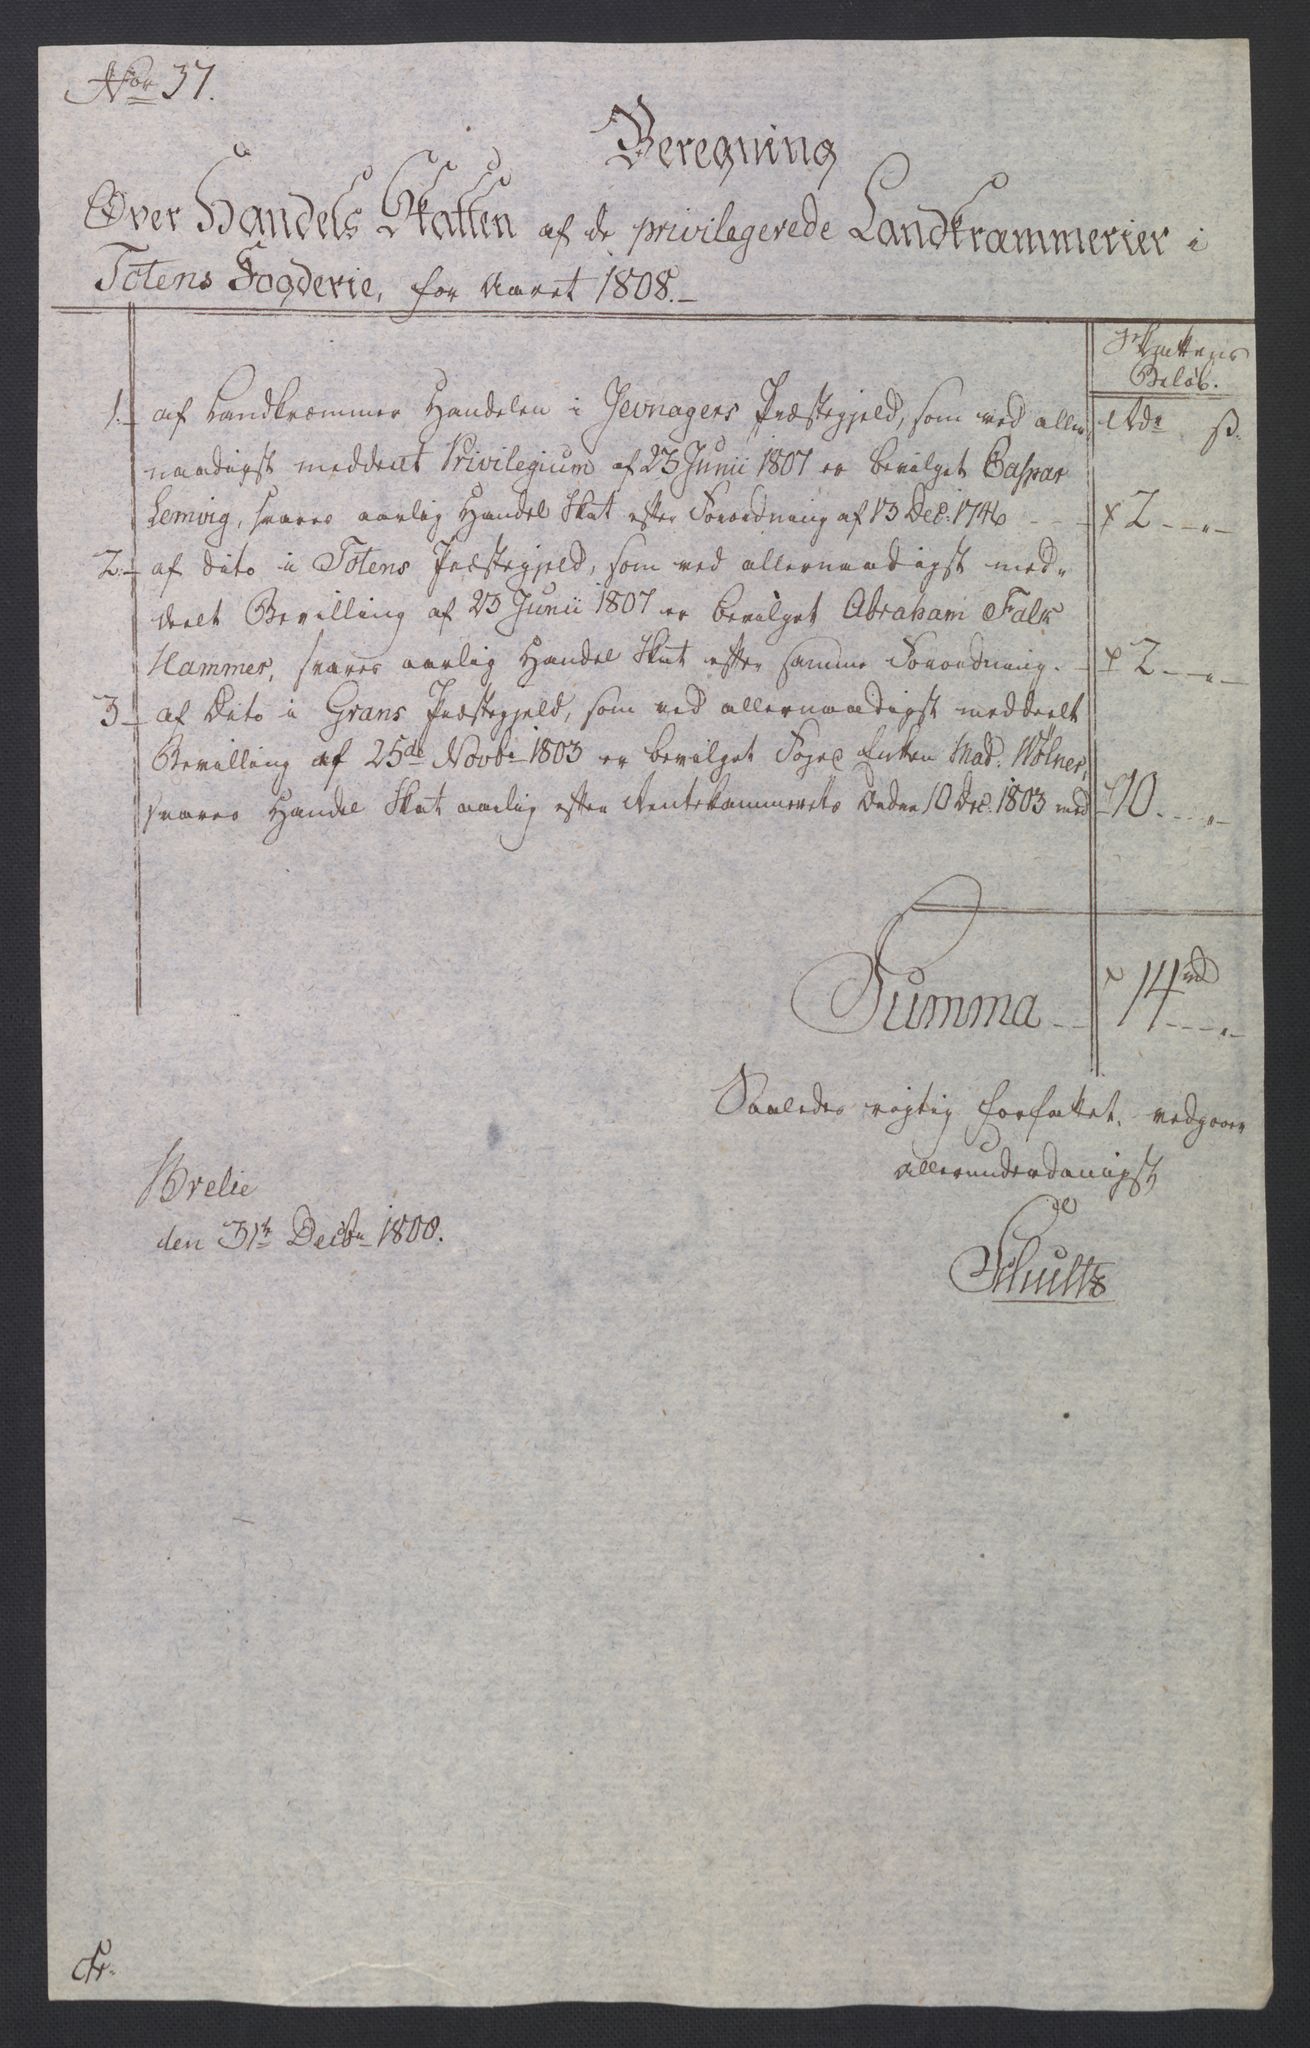 No 37.
Beregning
Over Handels Skatten af de privilegerede Landkrammerier i
Totens Fogderie, for Aaret 1808.—
Skattens
Beløb.
Rdr ß.
1.— af Landkræmmer Handelen i Jevnagers Præstegjeld, som ved aller
naadigst meddeelt Privilegium af 23 Junii 1807 er bevilget Caspar
Lemvig, svares aarlig Handel Skat efter Forordning af 13 Dec. 1746 - - - 2 - - " -
2.— af dito i Totens Præstegjeld, som ved allernaadigst med-
deelt Bevilling af 23 Junii 1807 er bevilget Abraham Falk
Hammer, svares aarlig Handel Skat efter samme Forordning. - 2 - - " -
3— af Dito i Grans Præstegjeld, som ved allernaadigst meddeelt
Bevilling af 25de Novbr 1803 er bevilget Foged Enken Mad. Wölner,
svares Handel Skat aarlig efter Rentekammerets Ordre 10 Dec. 1803 med 10 - - " -
Summa - - 14 rd - - " -
Saaledes rigtig forfattet, vedgaaer
allerunderdanigst
Brelie
den 31te Decbr 1808.
Schultz